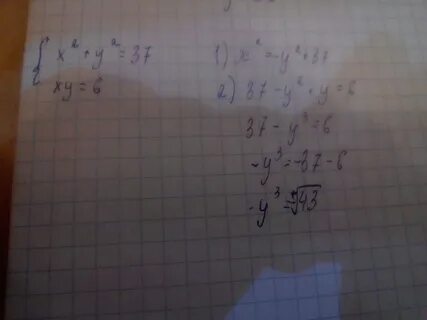 { x² + y² = 37
xy = 6
1) x² = -y² + 37
2) 37 - y² + y = 6
37 - y³ = 6
-y³ = -37 - 6
-y³ = √43